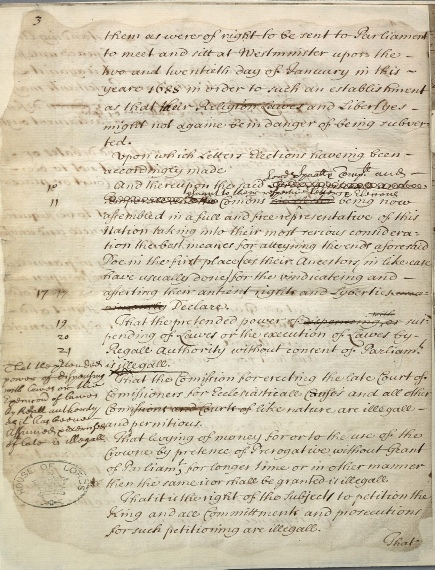 3
them as were of right to be sent to Parliament
to meet and sitt at Westminster upon the
two and twentieth day of January in this
yeare 1688 in order to such an establishment
as that their Religion Lawes and Libertyes
might not againe be in danger of being subver
ted.
Upon which Letters Elections haveing been
accordingly made
And thereupon the said Lords Spirituall Temp and
Comons being now
assembled in a full and free representative of this
Nation taking into their most serious considera
tion the best meanes for atteyning the ends aforesaid
Doe in the first place (as their Ancestors in like case
have usually done) for the vindicateing and
asserting their antient rights and Libertyes
Declare.
11
17
19
That the pretended power of sus
20
pending of Lawes or the execution of Lawes by
21
Regall Authority without consent of Parliamt
is illegall.
That the pretended
power of dispensing
with lawes or the
execution of lawes
by Regall authority
as it has been
assumed & exercised
of late is illegall
That the Comission for erecting the late Court of
Comissioners for Ecclesiasticall Causes and all other
Comissions and Courts of like nature are illegall
and pernitious.
That levying of money for or to the use of the
Crowne by pretence of Prerogative without Grant
of Parliamt for longer time or in other manner
then the same is or shall be granted is illegall
That it is the right of the Subjects to petition the
King and all Committments and prosecutions
for such petitioning are illegall.
That
HOUSE OF LORDS